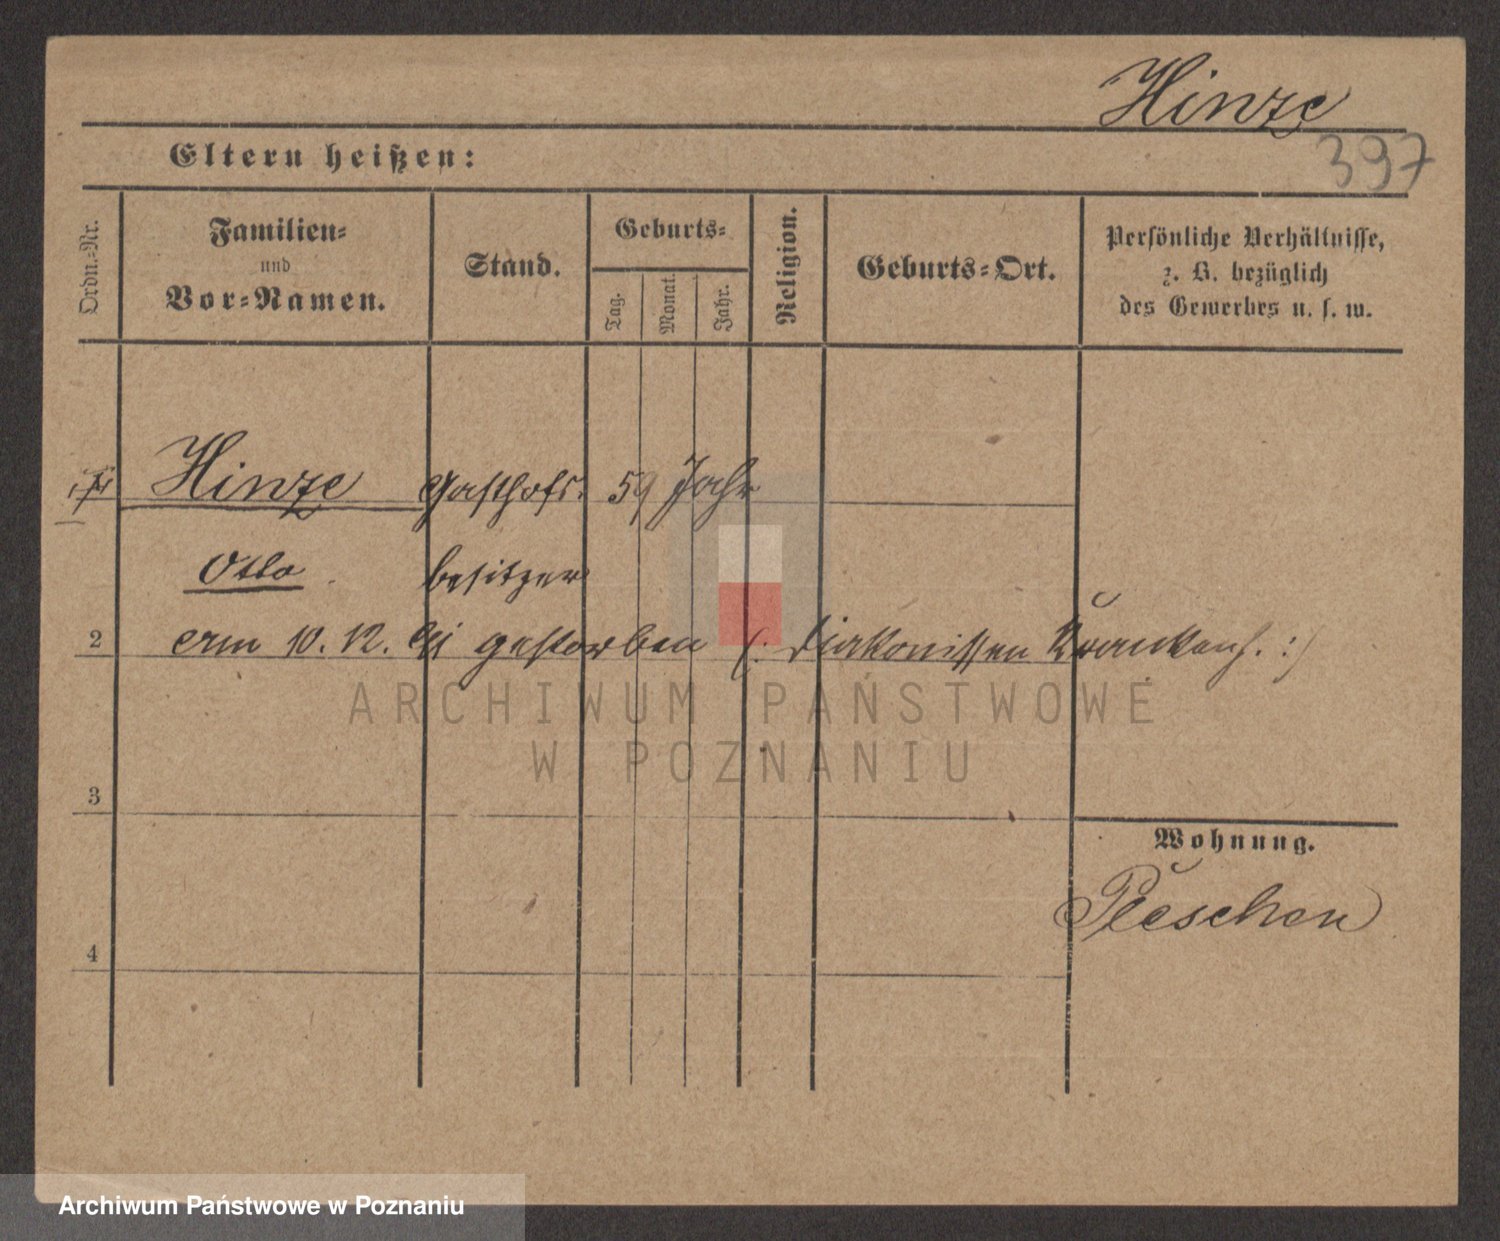 Hinze
397
Eltern heißen:
Ordn.-Nr.
Familien-
und
Vor-Namen.
Stand.
Geburts-
Tag.
Monat.
Jahr.
Religion.
Geburts-Ort.
Persönliche Verhältnisse,
z. B. bezüglich
des Gewerbes u. s. w.
Hinze Gasthofs- 59 Jahr
Otto besitzer
2 am 10. 12. gestorben (: Diakonissen Krankenh. :)
3
Wohnung.
Pleschen
4
ARCHIWUM PAŃSTWOWE
W POZNANIU
Archiwum Państwowe w Poznaniu